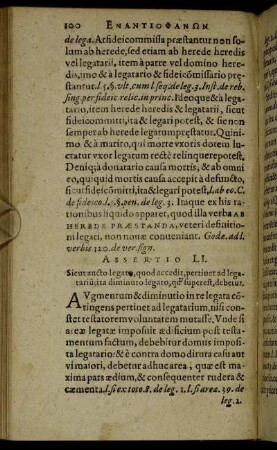 100 ENANTIOΦANΩN
de lega. At fideicommissa præstantur non so-
lum ab herede, sed etiam ab herede heredis
vel legatarii, item à patre vel domino here-
dis, imo & à legatario & fideicõmissario præ-
stantur. l. 5. §. vlt. cum l. seq. de leg. 3. Inst. de reb.
sing per fideic. relic. in princ. Ideoque & à lega-
tario, item herede heredis & legatarii, sic &
fideicommitti, ita & legari potest, & sic non
semper ab herede legatum præstatur. Quini-
mo & à marito, qui morte vxoris dotem lu-
cratur vxor legatum rectè relinquere potest.
Deniq; à donatario causa mortis, & ab omni
eo, qui quid mortis causa accepit à defuncto,
sicut fideicõmitti, ita & legari potest, l. ab eo. C.
de fideico. l. 1. §. pen. de leg. 3. Itaque ex his ra-
tionibus liquido apparet, quod illa verba AB
HEREDE PRÆSTANDA, veteri definitio-
ni legati, non nouæ conueniant. Gode. ad l.
verbis 120. de ver. sign.
ASSERTIO LI.
Sicut aucto legato, quod accedit, pertinet ad lega-
tariũ, ita diminuto legato, qđ superest, debetur.
AVgmentum & diminutio in re legata cõ-
tingens pertinet ad legatarium, nisi cons-
tet testatorem voluntatem mutasse. Vnde si
areæ legatæ imposuit ædificium post testa-
mentum factum, debebitur domus imposi-
ta legatario: & è contra domo diruta casu aut
vi maiori, debetur adhuc area, quæ est ma-
xima pars ædium, & consequenter rudera &
cæmenta. l. si ex toto. 8. de leg. 1. l. si area. 39. de
leg. 2.